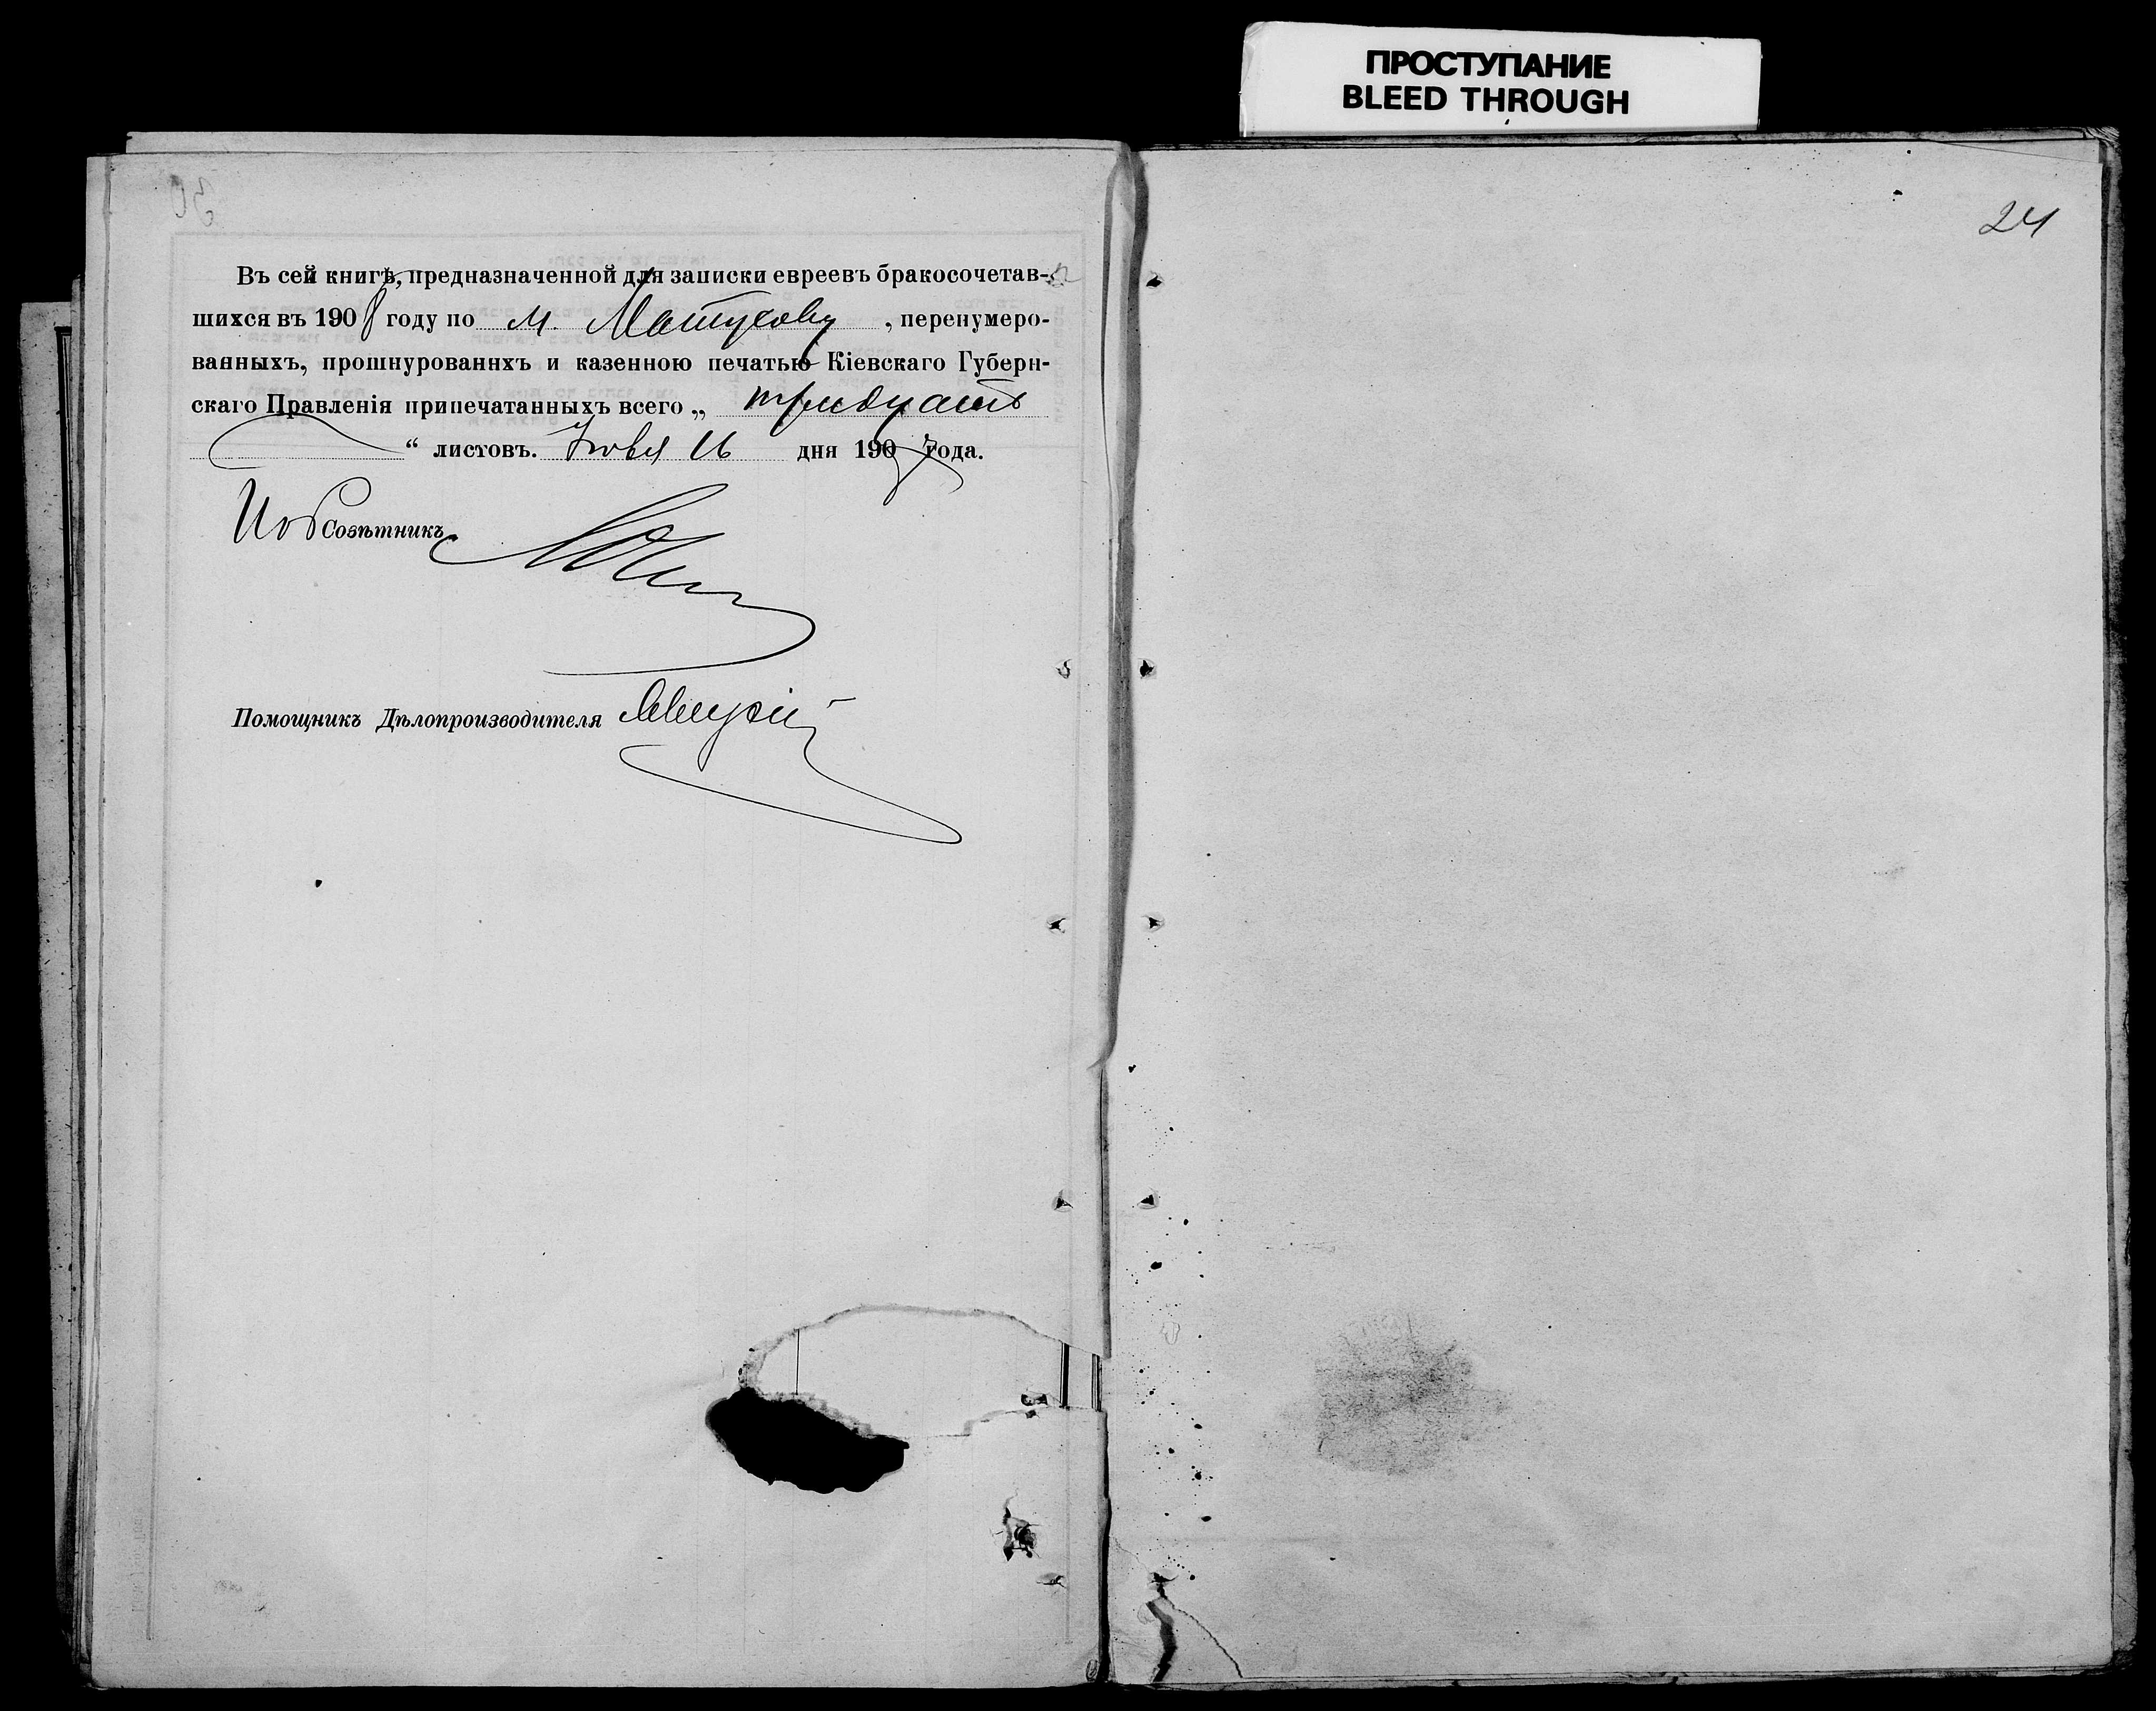 ПРОСТУПАНИЕ
BLEED THROUGH
24
30
Въ сей книгѣ, предназначенной для записки евреевъ бракосочетав-
шихся въ 1908 году по м. Матусову, перенумеро-
ванныхъ, прошнурованнхъ и казенною печатью Кіевскаго Губерн-
скаго Правленія припечатанныхъ всего „ тридцать
“ листовъ. Ноября 16 дня 1907 года.
Совѣтникъ
Помощникъ Дѣлопроизводителя